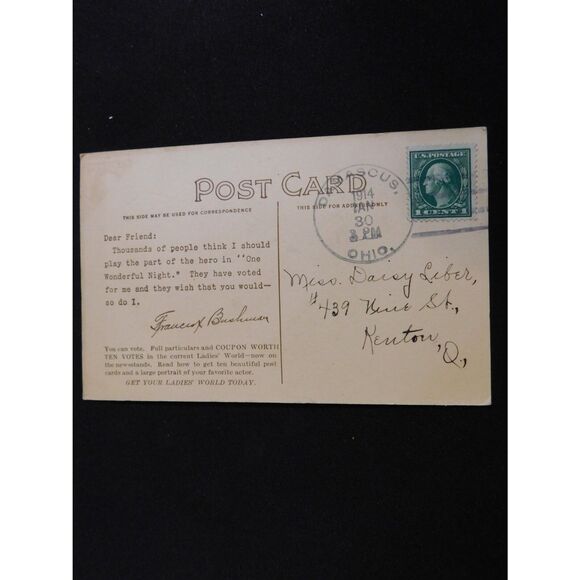 POST CARD
THIS SIDE MAY BE USED FOR CORRESPONDENCE
THIS SIDE FOR ADDRESS ONLY
Dear Friend:
Thousands of people think I should
play the part of the hero in "One
Wonderful Night." They have voted
for me and they wish that you would—
so do I.
Francis X Bushman
You can vote. Full particulars and COUPON WORTH
TEN VOTES in the current Ladies' World—now on
the newsstands. Read how to get ten beautiful post
cards and a large portrait of your favorite actor.
GET YOUR LADIES' WORLD TODAY.
DAMASCUS,
1914
JAN
30
3 PM
OHIO.
U.S. POSTAGE
1 CENT 1
Miss. Daisy Liber,
#439 St.,
Kenton,
O.,